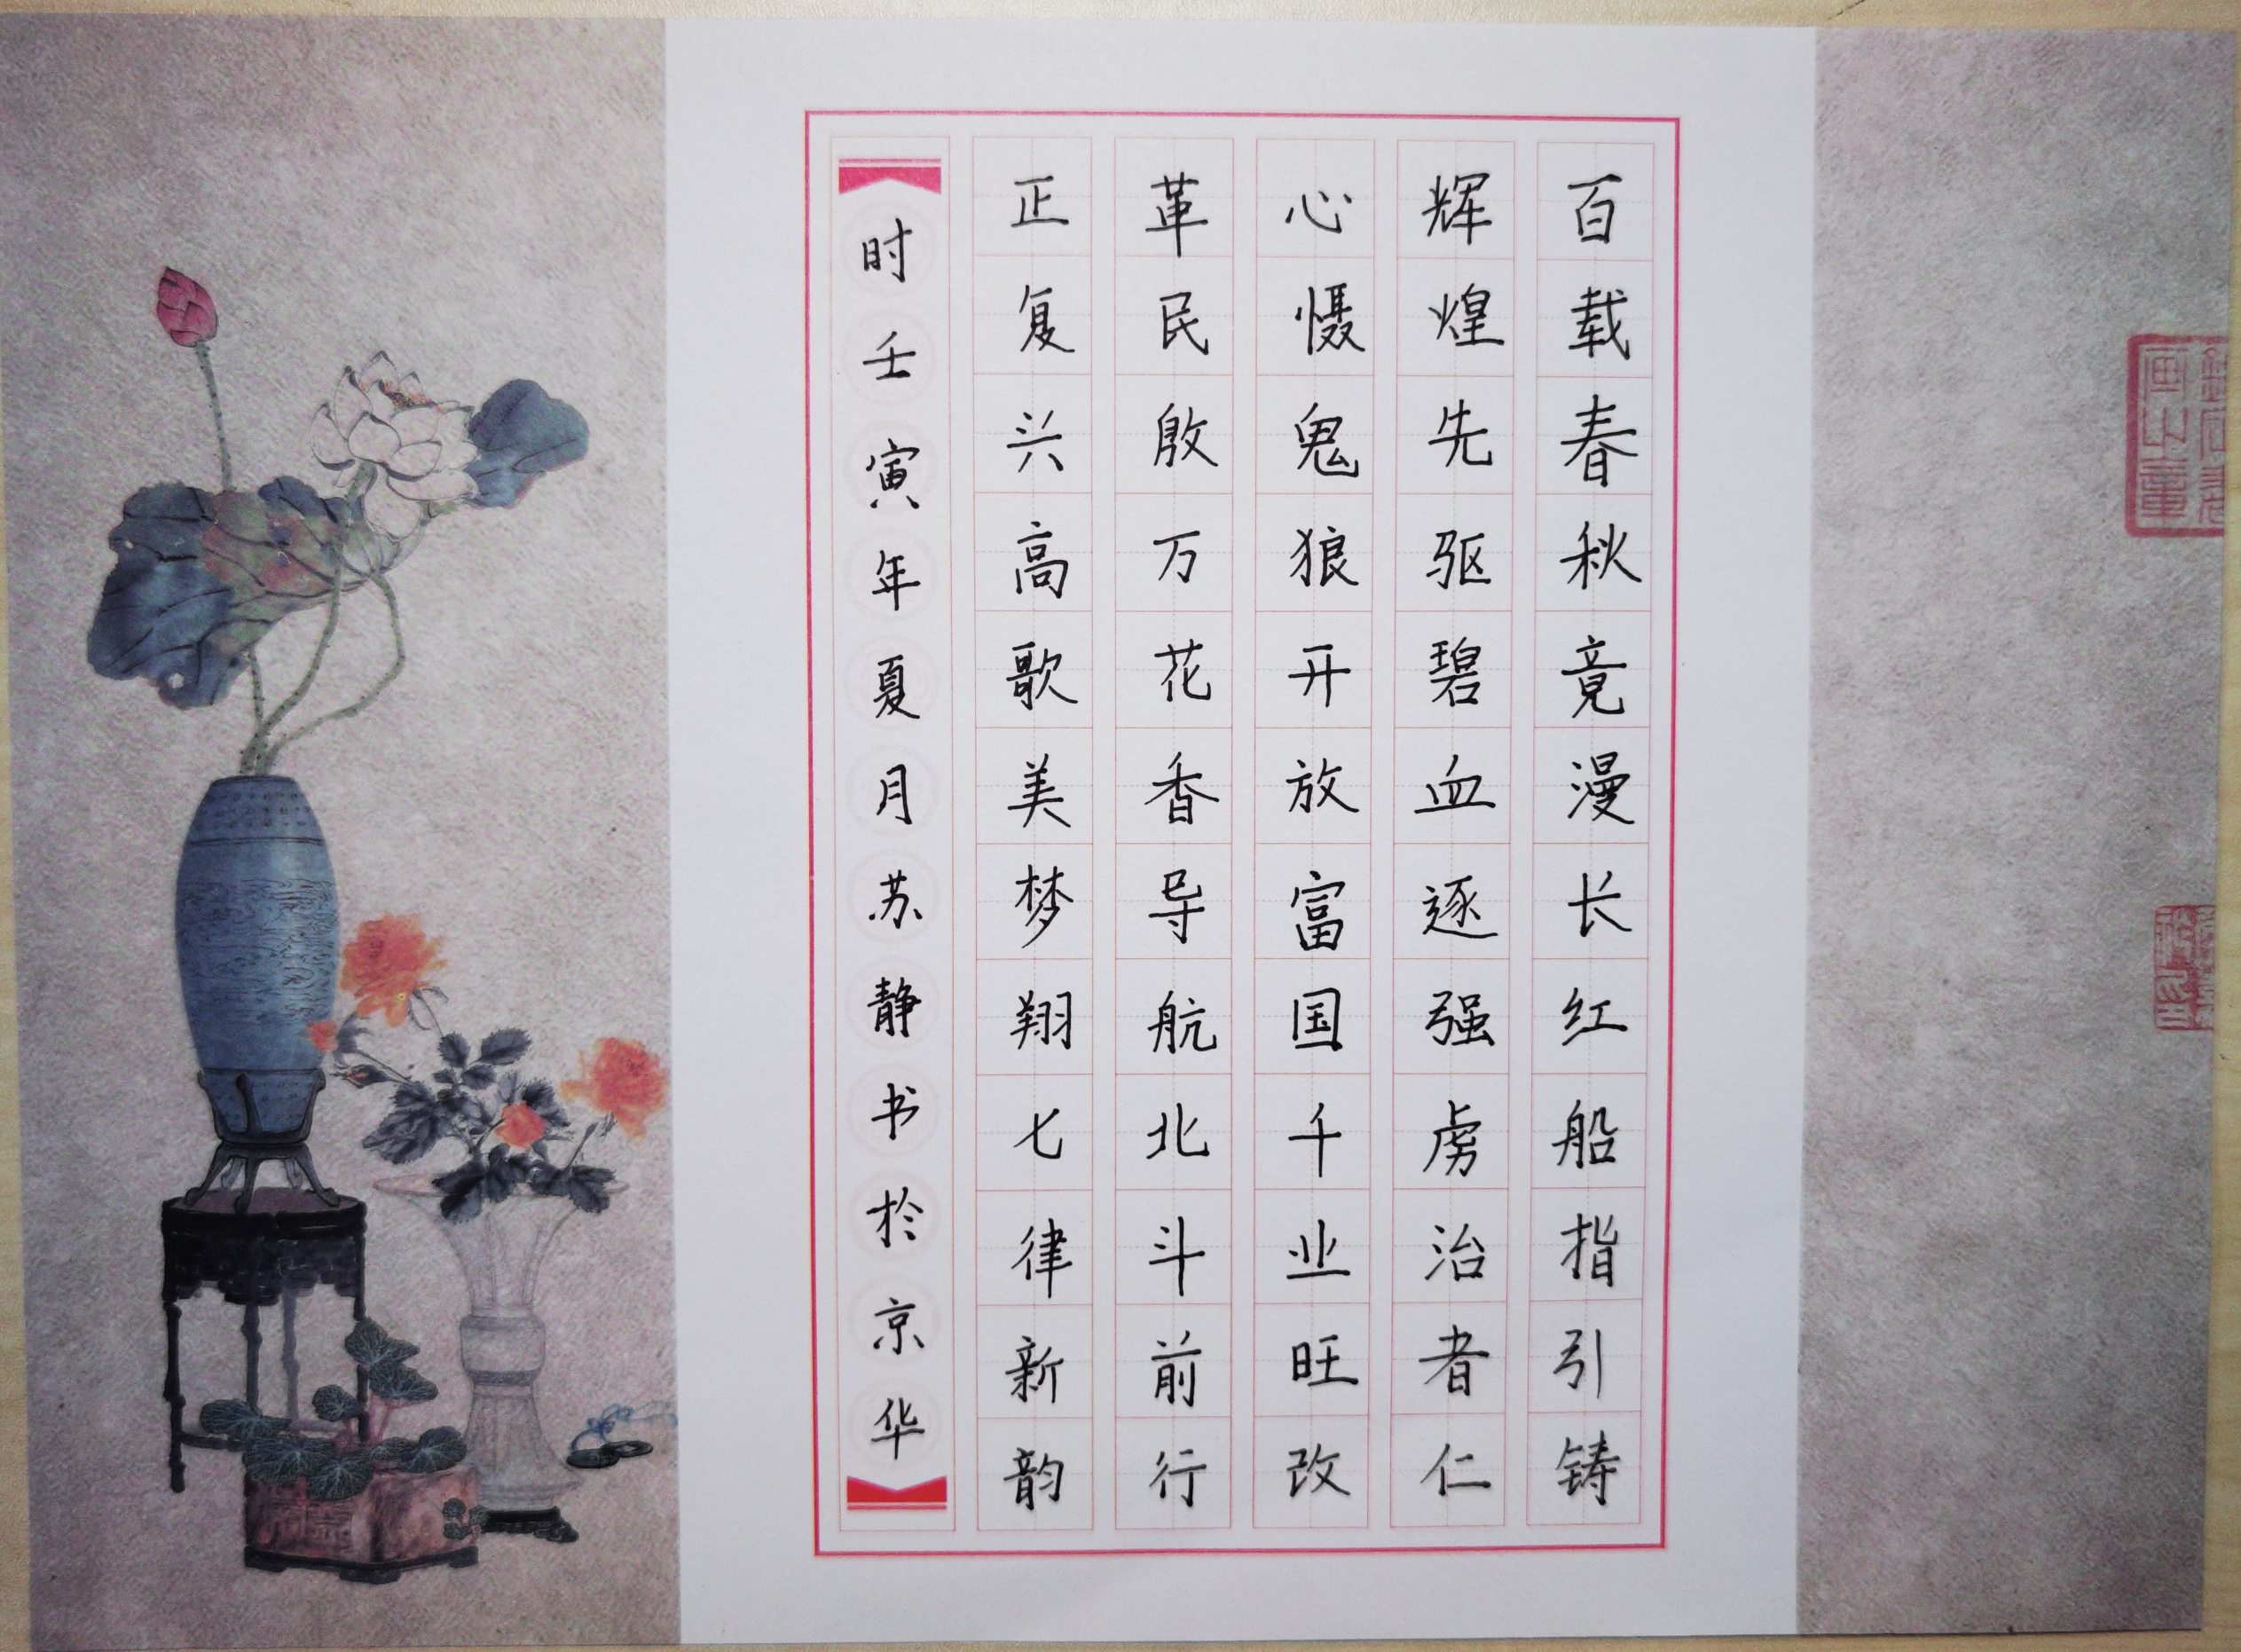 百载春秋竟漫长红船指引铸
辉煌先驱碧血逐强虏治者仁
心慑鬼狼开放富国千业旺改
革民殷万花香导航北斗前行
正复兴高歌美梦翔七律新韵
时壬寅年夏月苏静书於京华